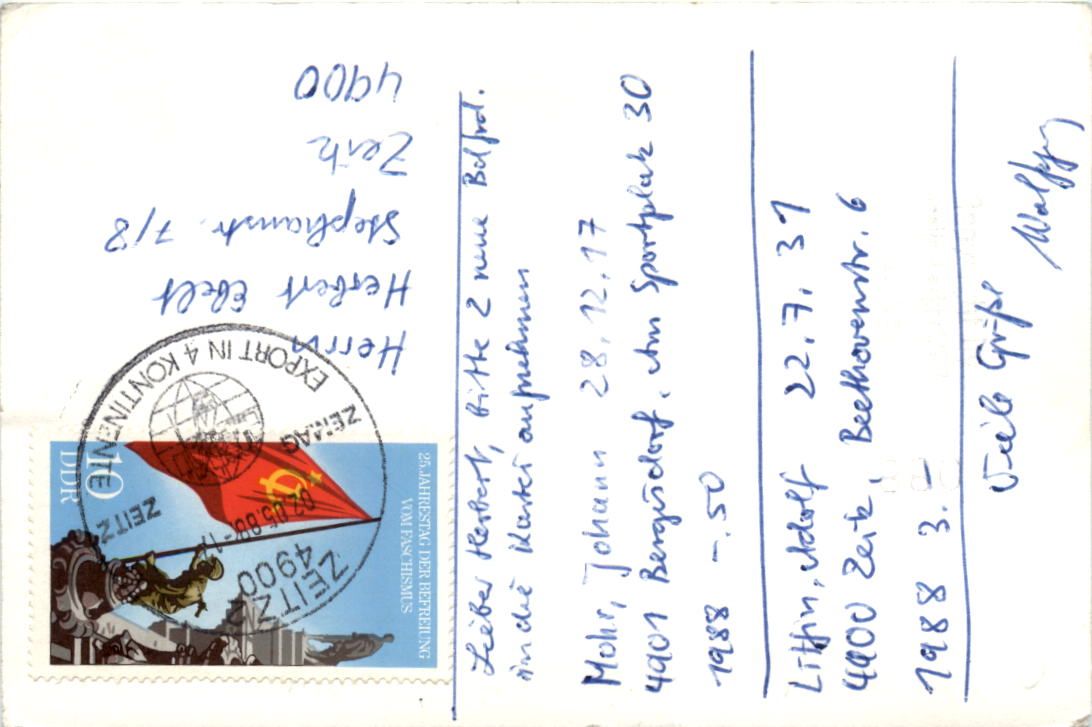 Lieber Herbert, bitte 2 neue
in die Kartei aufnehmen
Mohr, Johann 28.12.17
4901 Bergisdorf, Am Sportplatz 30
1988 -.50
Litfin, Adolf 22.7.31
4900 Zeitz, Beethovenstr. 6
1988 3.-
Viele Grüße
Wolfgang
Herrn
Herbert Ebelt
Stephanstr. 7/8
Zeitz
4900
25. JAHRESTAG DER BEFREIUNG
VOM FASCHISMUS
DDR
10
ZEITZ
4900
02.05.88
ZEMAG
ZEITZ
EXPORT IN 4 KONTINENTE